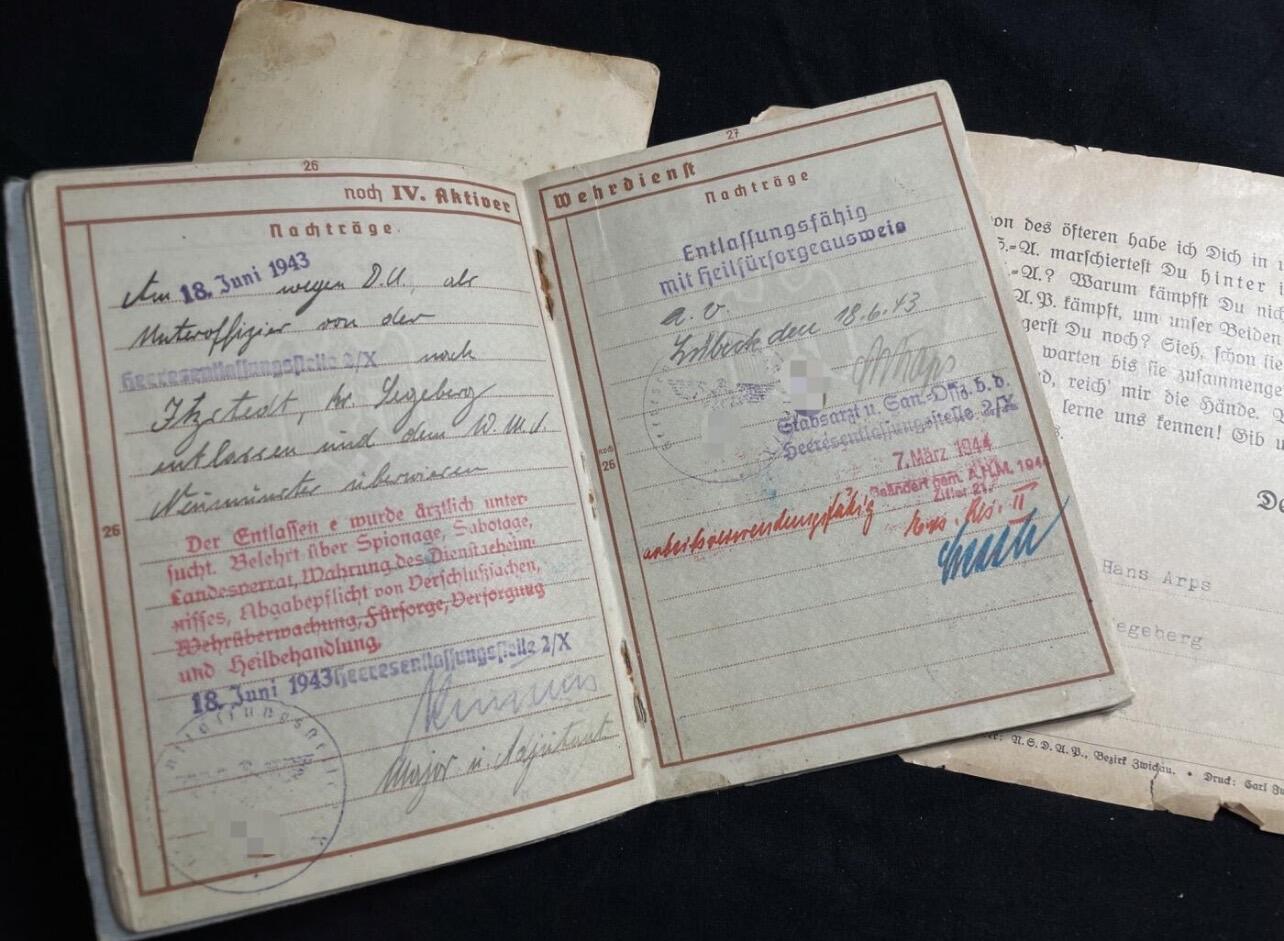 26
noch IV. Aktiver
Nachträge.
Am 18. Juni 1943 wegen D.U. als
Unteroffizier von der
Heeresentlassungsstelle 2/X nach
Itzstedt, Kr. Segeberg
entlassen und dem W.M.A.
Neumünster überwiesen
26
Der Entlassen e wurde ärztlich unter-
sucht. Belehrt über Spionage, Sabotage,
Landesverrat, Wahrung des Dienstgeheim-
nisses, Abgabepflicht von Verschlußsachen,
Wehrüberwachung, Fürsorge, Versorgung
und Heilbehandlung.
18. Juni 1943 Heeresentlassungsstelle 2/X
Major u. Adjutant
27
Wehrdienst
Nachträge
Entlassungsfähig
mit Heilfürsorgeausweis
a. v.
Lübeck den 18.6.43
Stabsarzt u. San.-Offz. b. d.
Heeresentlassungsstelle 2/X
noch
26
7. März 1944
Geändert gem. A.H.M. 1944
Ziffer 21.
arbeitsverwendungsfähig Ers. Res. II
on des öfteren habe ich Dich in
S.-A. marschiertest Du hinter
-A.? Warum kämpfst Du nic
A. P. kämpft, um unser Beiden
gerst Du noch? Sieh, schon lie
warten bis sie zusammenge
d, reich' mir die Hände.
lerne uns kennen! Gib
De
Hans Arps
egeberg
N.S.D.A.P., Bezirk Zwickau. • Druck: Carl